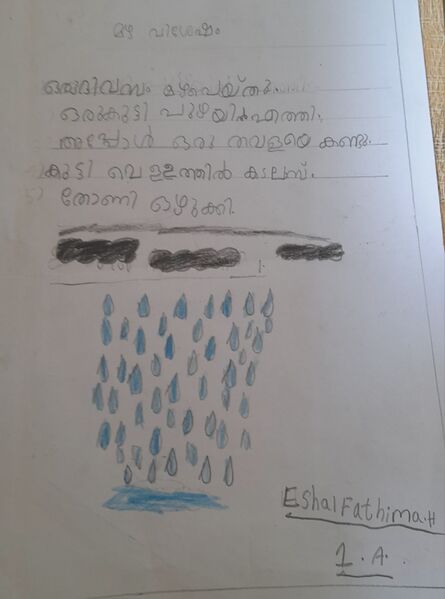 മഴ വിശേഷം
ഒരുദിവസം മഴപെയ്തു.
ഒരുകുട്ടി പുഴയിൽഎത്തി.
അപ്പോൾ ഒരു തവളയെ കണ്ടു.
കുട്ടി വെള്ളത്തിൽ കടലസ്.
തോണി ഒഴുക്കി.
Eshal Fathima.H
1.A.